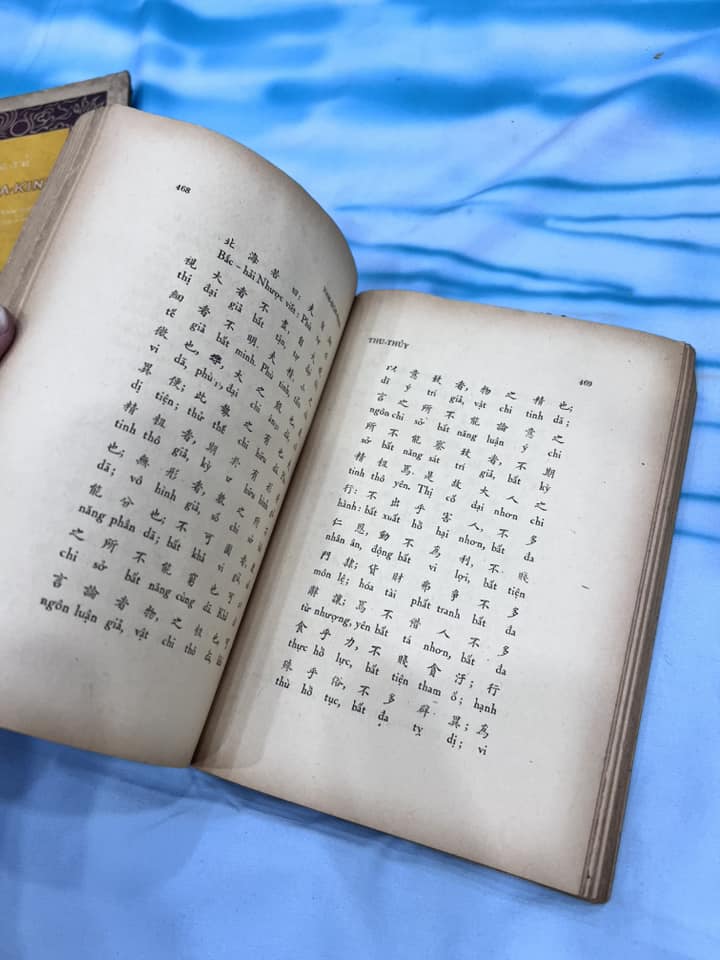 468
北 海 若 曰: 夫 自
Bắc-hải Nhược viết: Phù tự
視 大 者 不 盡, 自
thị đại giả bất tận, tự
細 者 不 明. 夫 精 小
tế giả bất minh. Phù tinh,
微 也, 大 之 殷 也
vi dã, đại chi ân
異 便; 此 勢 之 有 也
dị tiện; thử thế chi hữu
精 粗 者, 期 於 有 形
tinh thô giả, kỳ hữu hình
也; 無 形 者, 數 之 所
dã; vô hình giả, số chi
能 分 也; 不 可 圍
năng phân dã; bất khả vi
之 所 不 能 窮 也
chi sở bất năng cùng dã
言 論 者 物, 之 粗 也
ngôn luận giả, vật chi thô
THU-THỦY
469
以 意 致 者, 物 之 精 也;
dĩ ý trí giả, vật chi tinh dã;
言 之 所 不 能 論 意 之
ngôn chi sở bất năng luận ý chi
所 不 能 察 致 者, 不 期
sở bất năng sát trí giả, bất kỳ
精 粗 焉 是 故 大 人 之
tinh thô yên. Thị cố đại nhơn chi
行: 不 出 乎 害 人, 不 多
hành: bất xuất hồ hại nhơn, bất đa
仁 恩, 動 不 為 利, 不 賤
nhân ân, động bất vi lợi, bất tiện
門 隸; 貨 財 弗 爭 不 多
môn lệ; hóa tài phất tranh bất đa
辭 讓; 焉 不 借 人 不 多
từ nhượng, yên bất tá nhơn, bất đa
食 乎 力, 不 賤 貪 汙; 行
thực hồ lực, bất tiện tham ố; hạnh
殊 乎 俗, 不 多 辟 異; 為
thù hồ tục, bất đa tỵ dị; vi